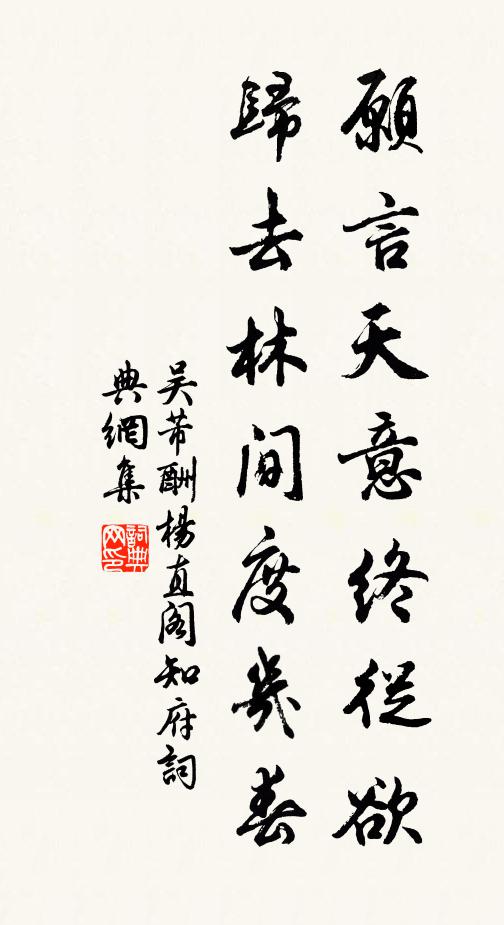 願言天意終從欲
歸去林間度幾春
吳芾酬楊直閣知府詞
典網集
詞典網印